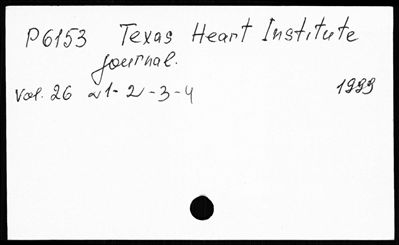 P6153 Texas Heart Institute
journal.
Vol. 26 N1-2-3-4 1999